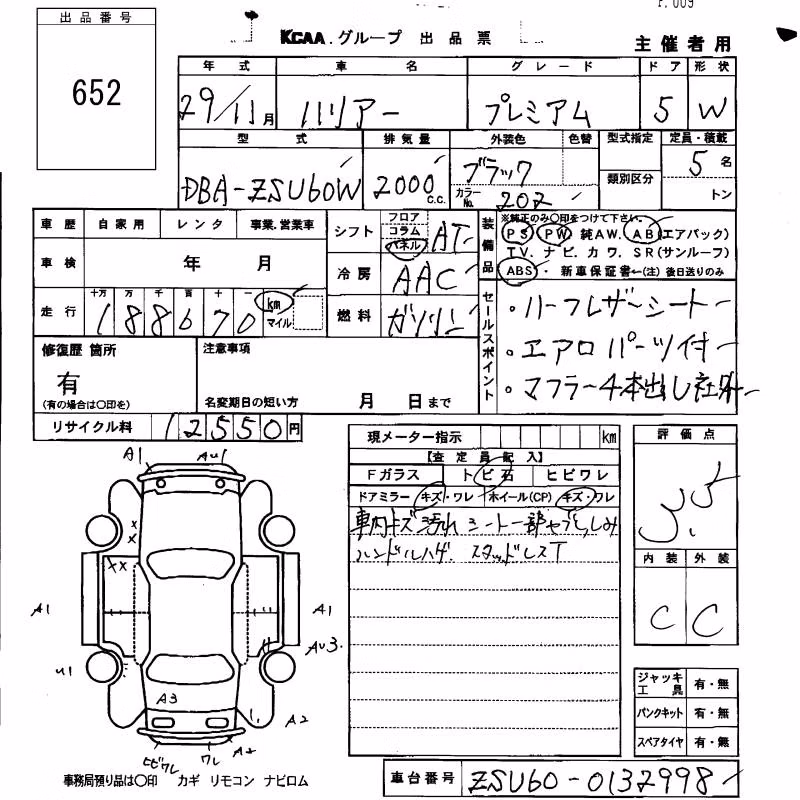 P.009
出品番号
652
KCAA.グループ 出品票
主催者用
年式 車名 グレード ドア 形状
29/11月 ハリアー プレミアム 5 W
型式 排気量 外装色 色替 型式指定 定員・積載
DBA-ZSU60W 2000c.c. ブラック カラーNo. 202 類別区分 5名 トン
車歴 自家用 レンタ 事業.営業車
車検 年 月
走行 十万 万 千 百 十 一 km マイル
188670
シフト フロア コラム パネル AT
冷房 AAC
燃料 ガソリン
装備品 ※純正のみ〇印をつけて下さい。
PS PW 純AW. AB(エアバック)
TV. ナビ. カワ. SR(サンルーフ)
ABS・新車保証書←(注)後日送りのみ
セールスポイント
・ハーフレザーシート
・エアロパーツ付
・マフラー4本出し社外
修復歴 箇所
有
(有の場合は〇印を)
注意事項
名変期日の短い方 月 日まで
リサイクル料 12550円
現メーター指示 km
【査定員記入】
Fガラス トビ石 ヒビワレ
ドアミラー キズ・ワレ ホイール(CP) キズ・ワレ
車内キズ 汚れ シート一部ヤブレ,しみ
ハンドルハゲ. スタッドレスT
評価点
3.5
内装 外装
C C
A1 AU1
A1 A1
AU3.
U1
A3
A2
A2
ヒビワレ ワレ
ジャッキ工具 有・無
パンクキット 有・無
スペアタイヤ 有・無
事務局預り品は〇印 カギ リモコン ナビロム
車台番号 ZSU60-0132998